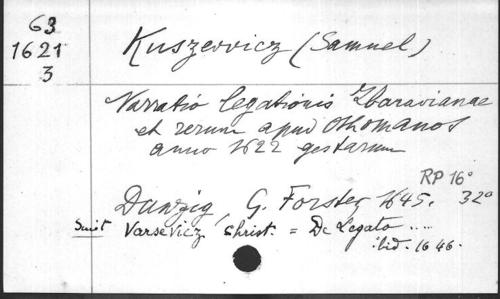 63
1621
3
Kuszevvicz (Samuel)
Narratio legationis Zbaravianae
et rerum apud Othomanos
anno 1622 gestarum
RP 16°
Danzig, G. Forster, 1645. 32°
Suit Varsevicz Christ. = De Legato ....
ibid. 1646.